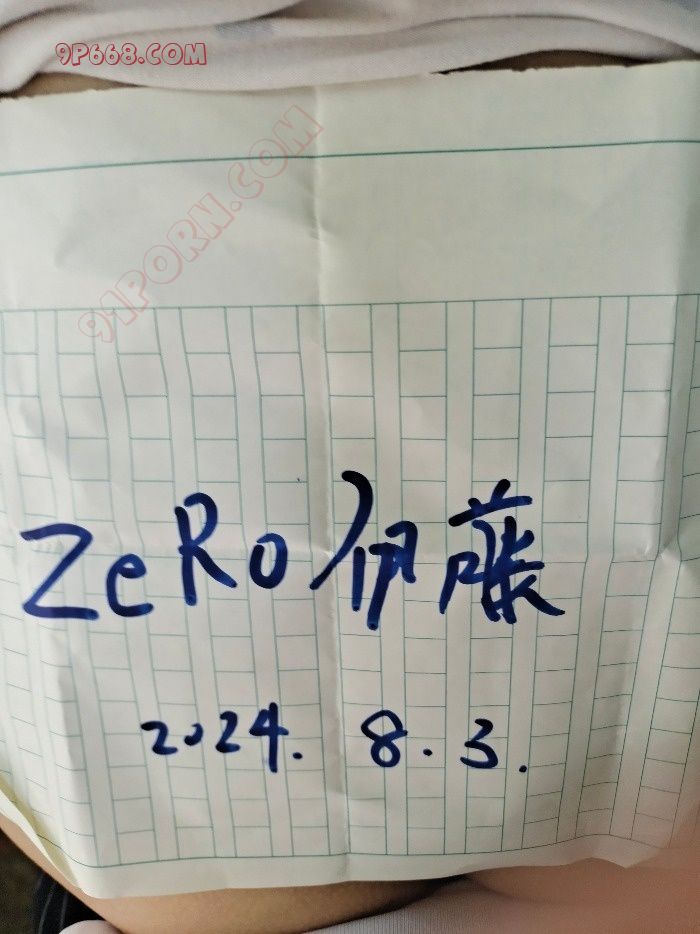 9P668.COM
91PORN.COM
ZeRo伊藤
2024. 8. 3.